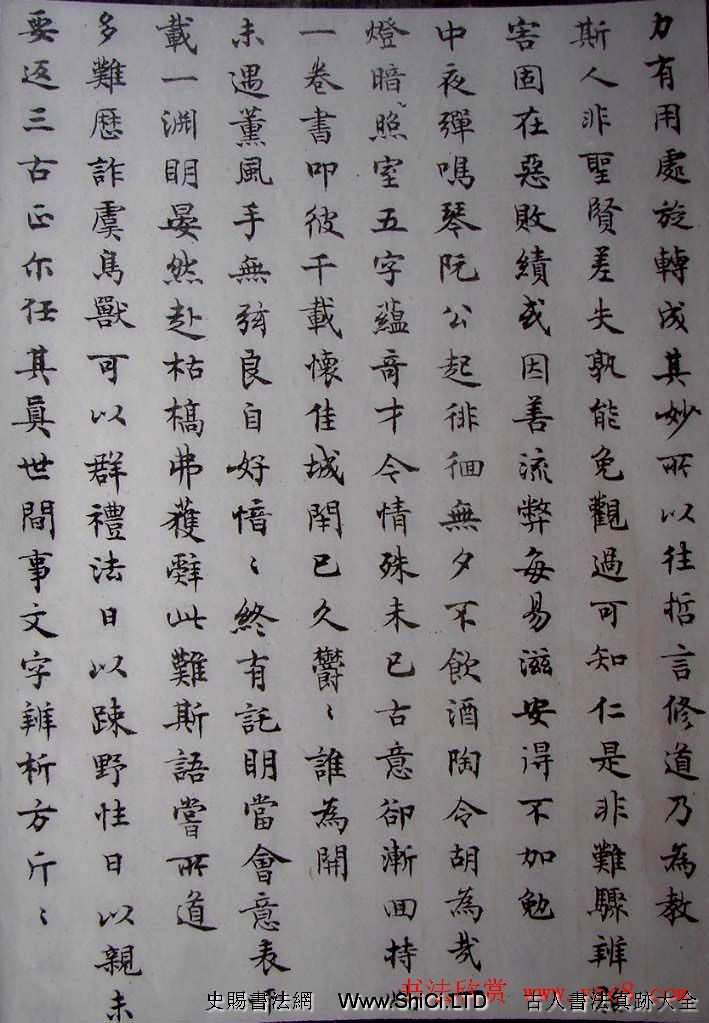 力有用處旋轉成其妙所以往哲言修道乃為教
斯人非聖賢差失孰能免觀過可知仁是非難驟辨
害固在惡敗績或因善流弊每易滋安得不加勉
中夜彈鳴琴阮公起徘徊無夕不飲酒陶令胡為哉
燈暗照室五字蘊奇才令情殊未已古意卻漸回持
一卷書叩彼千載懷佳城閉已久鬱〻誰為開
未遇薰風手無弦良自好愔〻終有託明當會意表
載一淵明晏然赴枯槁弗獲辭此難斯語嘗所道
多難歷詐虞鳥獸可以群禮法日以疎野性日以親未
要返三古正尔任其真世間事文字辨析方斤〻
书法欣赏
史賜書法網 Www.ShiCi.LTD 古人書法真跡大全